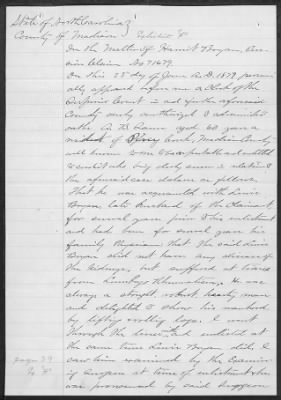 State of North Carolina }
County of Madison } Exhibit "E"
In the Matter of Harriet Bryan, Pen-
sion Claim No 71679.
On this 25 day of June A.D. 1879 person-
ally appeared before me a Clerk of the
Superior Court in and for the aforesaid
County duly authorized to administer
oaths A. D. aged 60 years a
resident of Creek, Madison County
well known to me to be reputable and entitled
to credit who being duly sworn in relation to
the aforesaid case declares as follows.
That he was acquainted with Lewis
Bryan, late husband of the Claimant
for several years prior to his enlistment
and had been for several years his
family Physician that the said Lewis
Bryan did not have any disease of
the Kidneys, but suffered at times
from Lumbago & Rheumatism, He was
always a strong, robust hearty man
and delighted to show his manhood
by lifting & rolling logs. I went
through the lines and enlisted at
the same time Lewis Bryan did. I
saw him examined by the Examin-
ing Surgeon at time of enlistment & he
was pronounced by said Surgeon
page 39
"E"